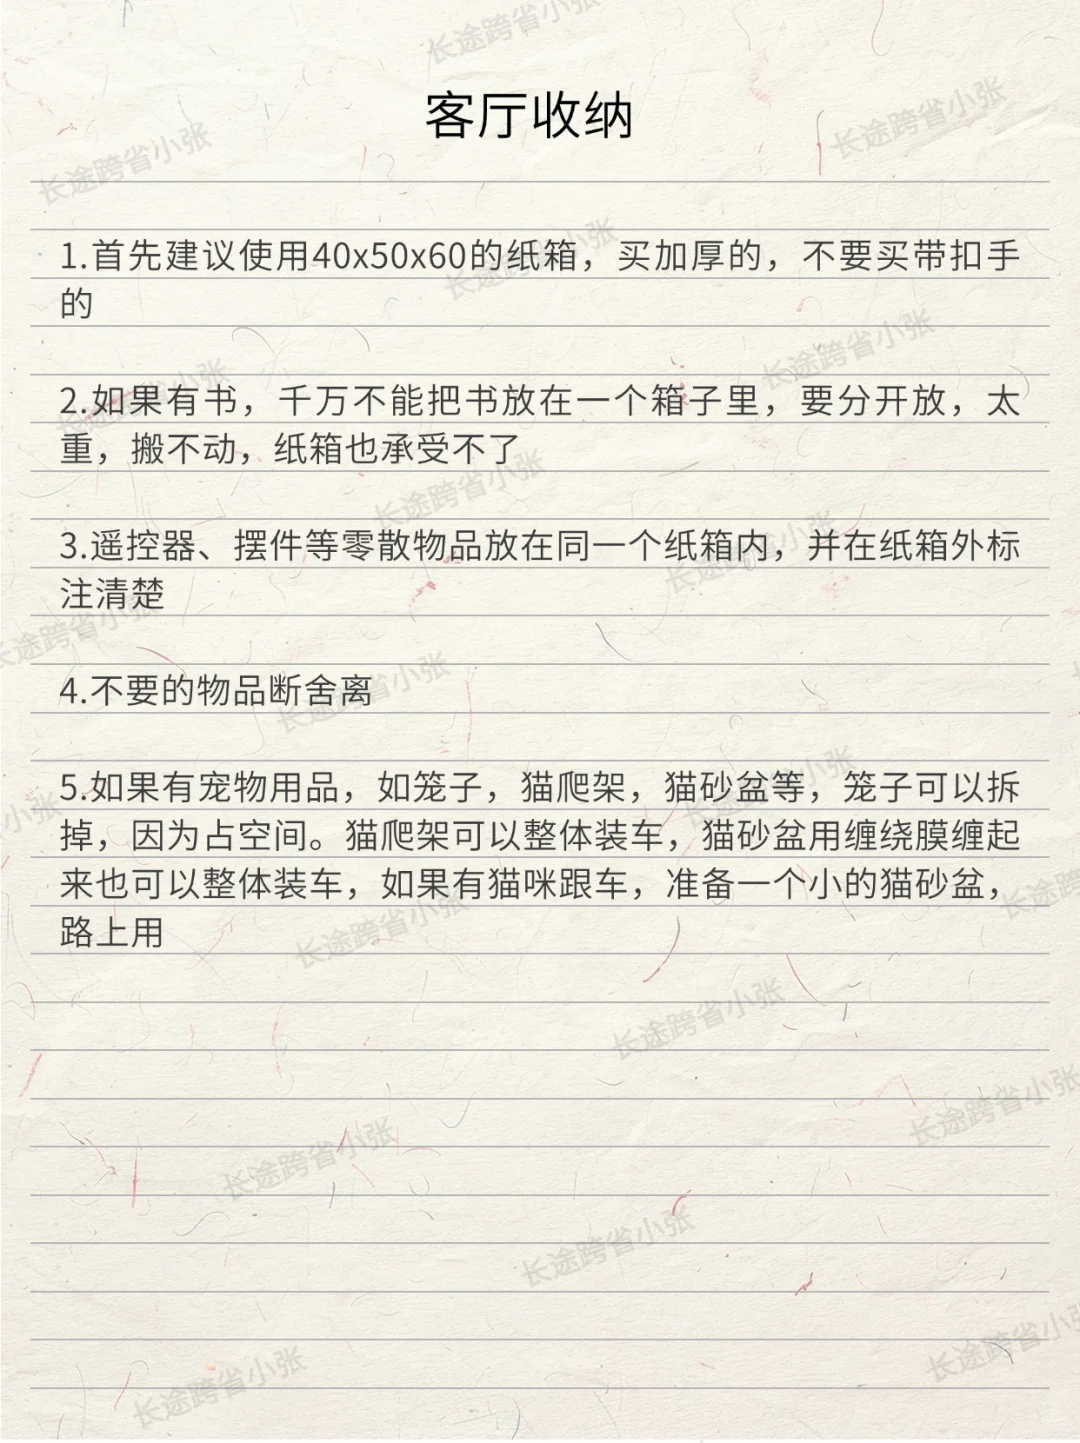 客厅收纳
1.首先建议使用40x50x60的纸箱，买加厚的，不要买带扣手
的
2.如果有书，千万不能把书放在一个箱子里，要分开放，太
重，搬不动，纸箱也承受不了
3.遥控器、摆件等零散物品放在同一个纸箱内，并在纸箱外标
注清楚
4.不要的物品断舍离
5.如果有宠物用品，如笼子，猫爬架，猫砂盆等，笼子可以拆
掉，因为占空间。猫爬架可以整体装车，猫砂盆用缠绕膜缠起
来也可以整体装车，如果有猫咪跟车，准备一个小的猫砂盆，
路上用
长途跨省小张